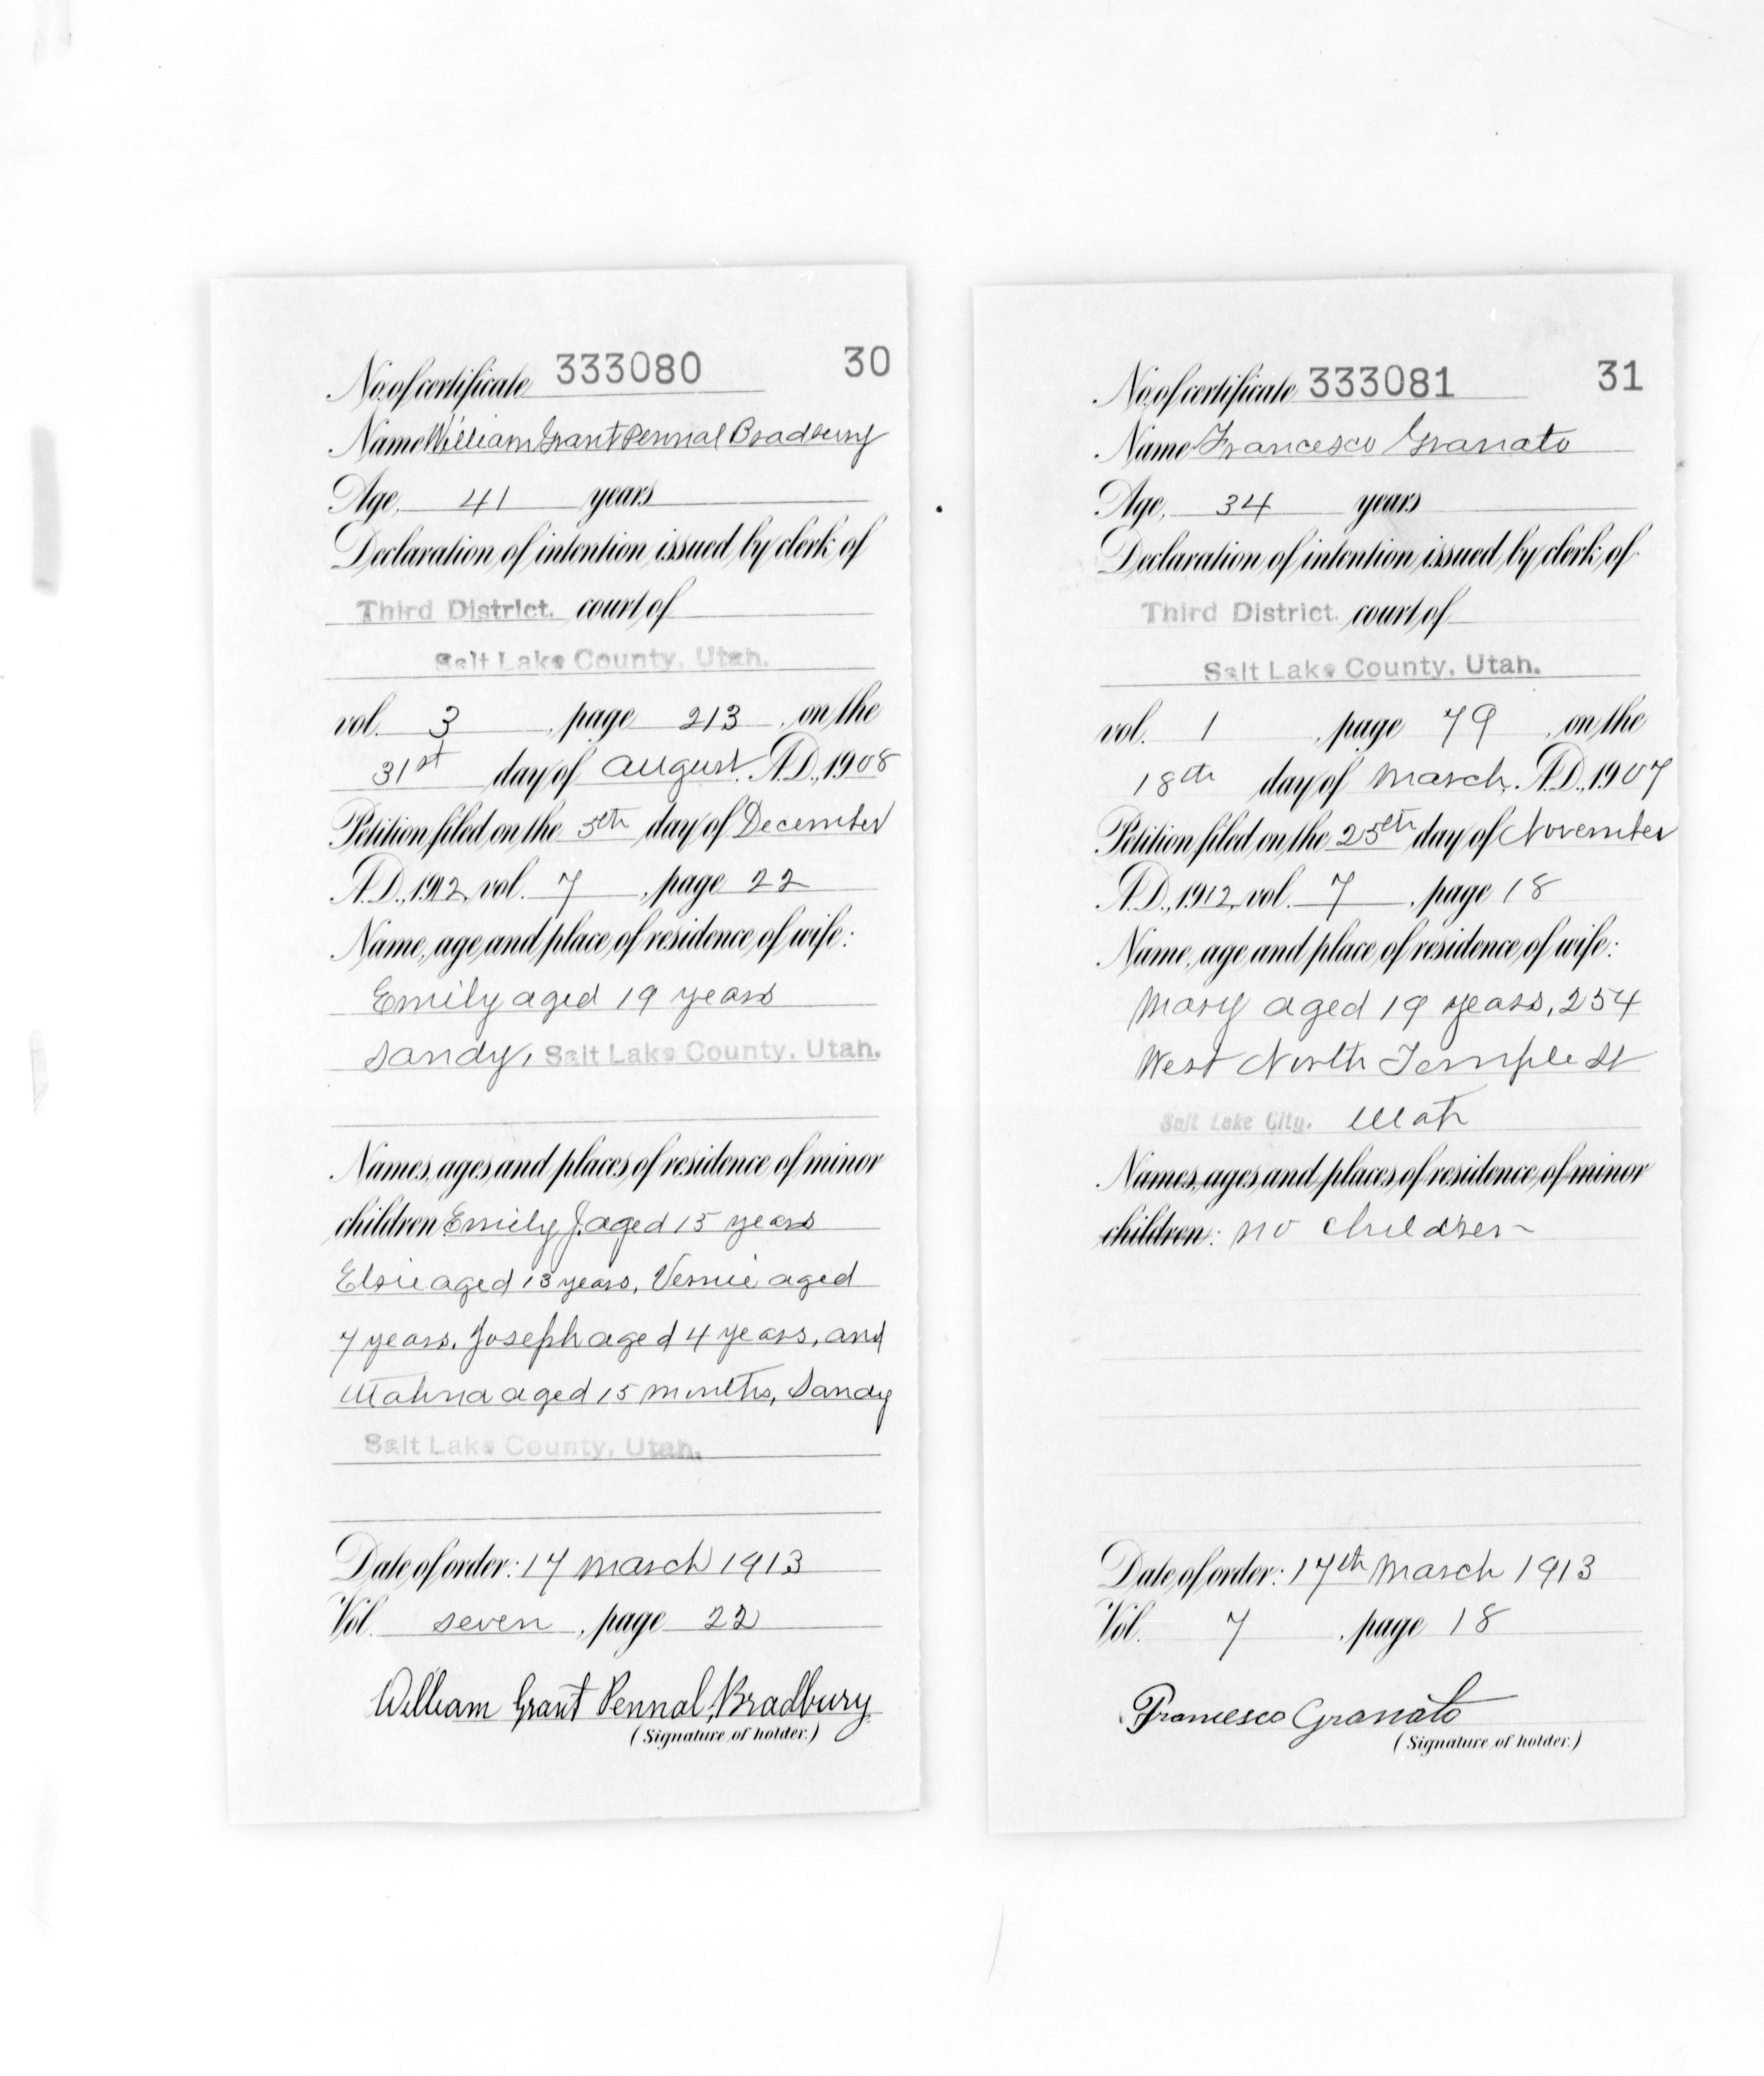 No. of certificate 333080 30
Name William Grant Pennal Bradbury
Age, 41 years
Declaration of intention issued by clerk of
Third District. court of
Salt Lake County, Utah.
vol. 3, page 213, on the
31st day of August, A.D., 1908
Petition filed on the 5th day of December
A.D., 1912, vol. 7, page 22
Name, age and place of residence of wife:
Emily aged 19 years
Sandy, Salt Lake County, Utah.
Names, ages and places of residence of minor
children Emily J. aged 15 years
Elsie aged 13 years, Vernie aged
7 years. Joseph aged 4 years, and
Utahna aged 15 months, Sandy
Salt Lake County, Utah.
Date of order: 17 March 1913
Vol. seven, page 22
William Grant Pennal Bradbury
(Signature of holder.)
No. of certificate 333081 31
Name Francesco Granato
Age, 34 years
Declaration of intention issued by clerk of
Third District. court of
Salt Lake County, Utah.
vol. 1, page 79, on the
18th day of March, A.D., 1907
Petition filed on the 25th day of November
A.D., 1912, vol. 7, page 18
Name, age and place of residence of wife:
Mary aged 19 years, 254
West North Temple St
Salt Lake City, Utah
Names, ages and places of residence of minor
children: no children
Date of order: 17th March 1913
Vol. 7, page 18
Francesco Granato
(Signature of holder.)